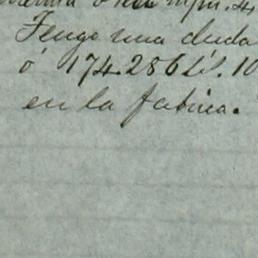 Tengo una duda
ó 174.286 L. 10
en la fabrica.